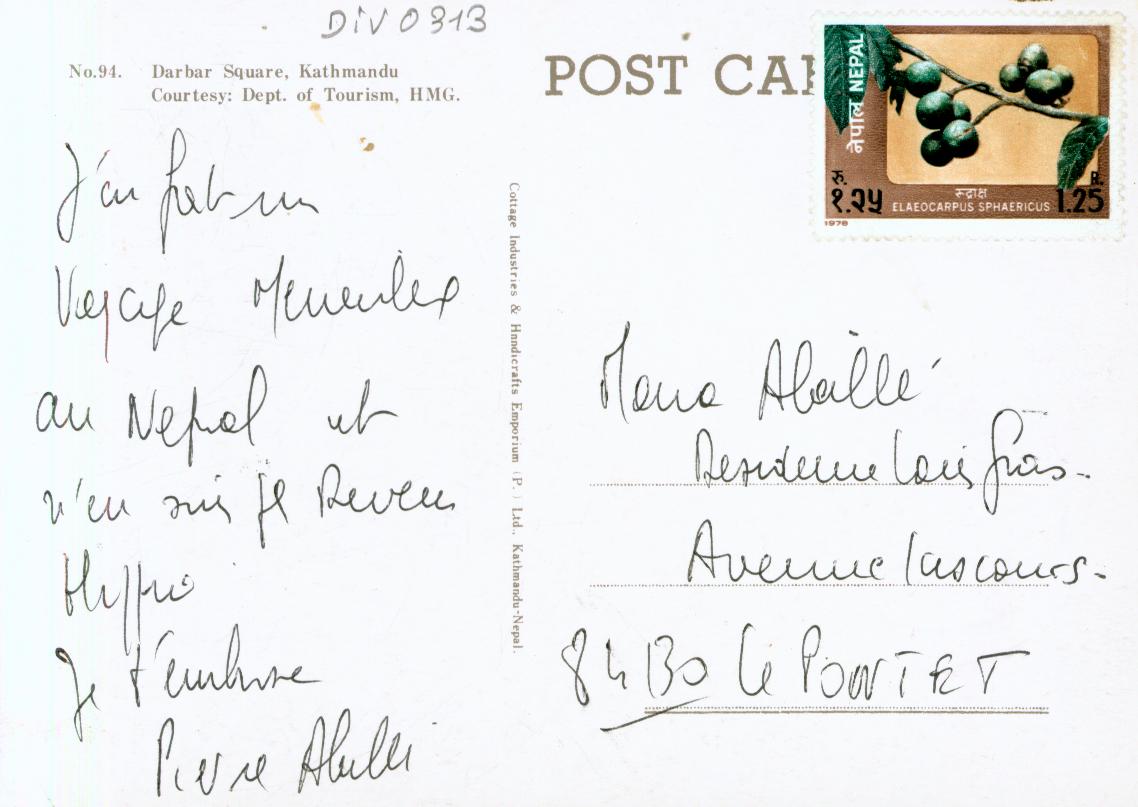 DIV0313
No.94. Darbar Square, Kathmandu
Courtesy: Dept. of Tourism, HMG.
POST CAR
नेपाल NEPAL
रु. १.२५
रूद्राक्ष
ELAEOCARPUS SPHAERICUS
R. 1.25
1978
J'ai fait un
Voyage Merveilleux
au Nepal et
n'en suis je Revenu
Hippie
Je t'embrasse
Pierre Abeille
Cottage Industries & Hnndicrafts Emporium (P.) Ltd., Kathmandu-Nepal.
Abeille
Residence Louis Gros.
Avenue Lascours.
84130 Le PONTET